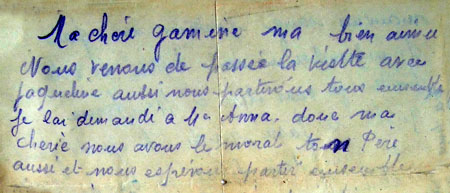 Ma cheré gamine ma bien aimee
Nous venons de passée la visitte avec
jaqueline aussi nous partirons tous ensemble
Je lai demandé a Me Anna. donc ma
cherie nous avons le moral ton Pere
aussi et nous espérons partir ensemble